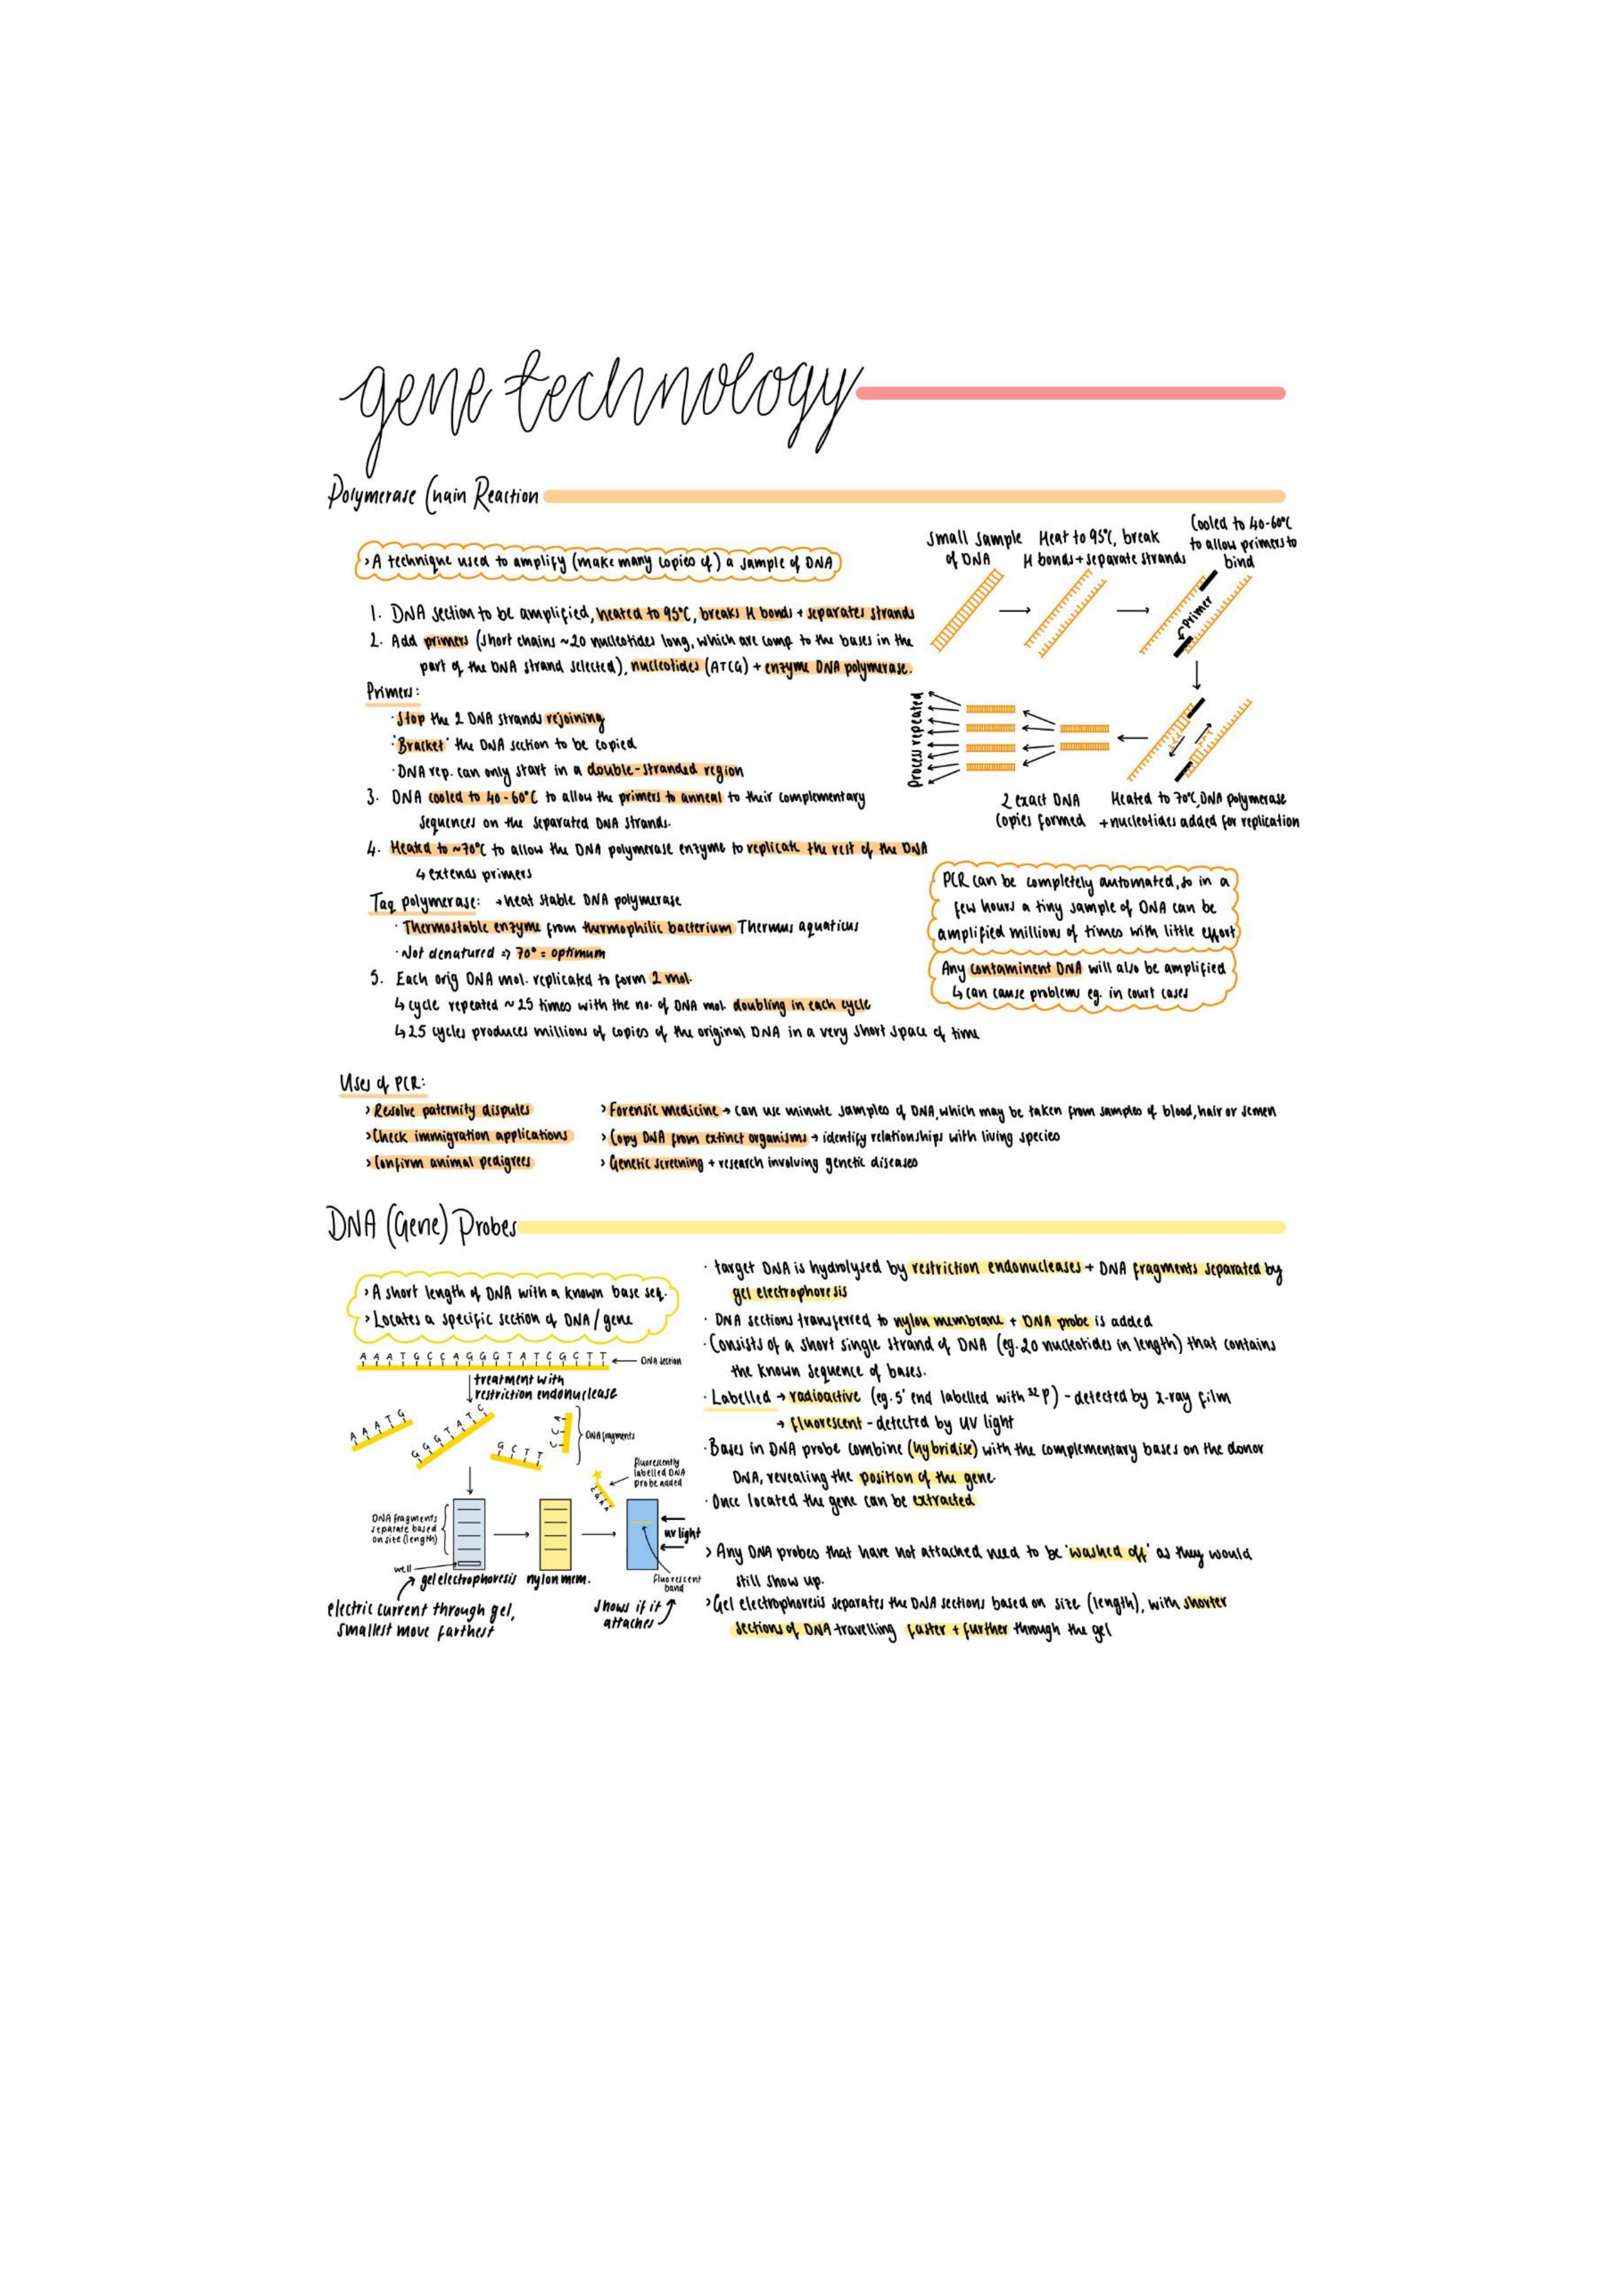 gene technology
Polymerase Chain Reaction
> A technique used to amplify (make many copies of) a sample of DNA
1. DNA section to be amplified, heated to 95°C, breaks H bonds + separates strands
2. Add primers (short chains ~20 nucleotides long, which are comp to the bases in the
part of the DNA strand selected), nucleotides (ATCG) + enzyme DNA polymerase.
Primers:
· Stop the 2 DNA strands rejoining
· 'Bracket' the DNA section to be copied
· DNA rep. can only start in a double-stranded region
3. DNA cooled to 40-60°C to allow the primers to anneal to their complementary
sequences on the separated DNA strands.
4. Heated to ~70°C to allow the DNA polymerase enzyme to replicate the rest of the DNA
↳ extends primers
Taq polymerase: → heat stable DNA polymerase
· Thermostable enzyme from thermophilic bacterium Thermus aquaticus
· Not denatured => 70° = optimum
5. Each orig DNA mol. replicated to form 2 mol.
↳ cycle repeated ~25 times with the no. of DNA mol. doubling in each cycle
↳ 25 cycles produces millions of copies of the original DNA in a very short space of time
Small sample
of DNA
Heat to 95°C, break
H bonds + separate strands
Cooled to 40-60°C
to allow primers to
bind
Primer
Process repeated
2 exact DNA
copies formed
Heated to 70°C, DNA polymerase
+ nucleotides added for replication
PCR can be completely automated, so in a
few hours a tiny sample of DNA can be
amplified millions of times with little effort
Any contaminent DNA will also be amplified
↳ can cause problems eg. in court cases
Uses of PCR:
> Resolve paternity disputes
> Check immigration applications
> Confirm animal pedigrees
> Forensic medicine → can use minute samples of DNA, which may be taken from samples of blood, hair or semen
> Copy DNA from extinct organisms → identify relationships with living species
> Genetic screening + research involving genetic diseases
DNA (Gene) Probes
> A short length of DNA with a known base seq.
> Locates a specific section of DNA / gene
A A A T G C C A G G G T A T C G C T T
DNA section
treatment with
restriction endonuclease
A A A T G
G G G T A T C
G C T T
C C A
DNA fragments
fluorescently
labelled DNA
probe added
C G A A
DNA fragments
separate based
on size (length)
well
gel electrophoresis
nylon mem.
uv light
fluorescent
band
electric current through gel,
smallest move farthest
shows if it
attaches
· target DNA is hydrolysed by restriction endonucleases + DNA fragments separated by
gel electrophoresis
· DNA sections transferred to nylon membrane + DNA probe is added
· Consists of a short single strand of DNA (eg. 20 nucleotides in length) that contains
the known sequence of bases.
· Labelled → radioactive (eg. 5' end labelled with ³²P) - detected by x-ray film
→ fluorescent - detected by UV light
· Bases in DNA probe combine (hybridise) with the complementary bases on the donor
DNA, revealing the position of the gene.
· Once located the gene can be extracted
> Any DNA probes that have not attached need to be 'washed off' as they would
still show up.
> Gel electrophoresis separates the DNA sections based on size (length), with shorter
sections of DNA travelling faster + further through the gel